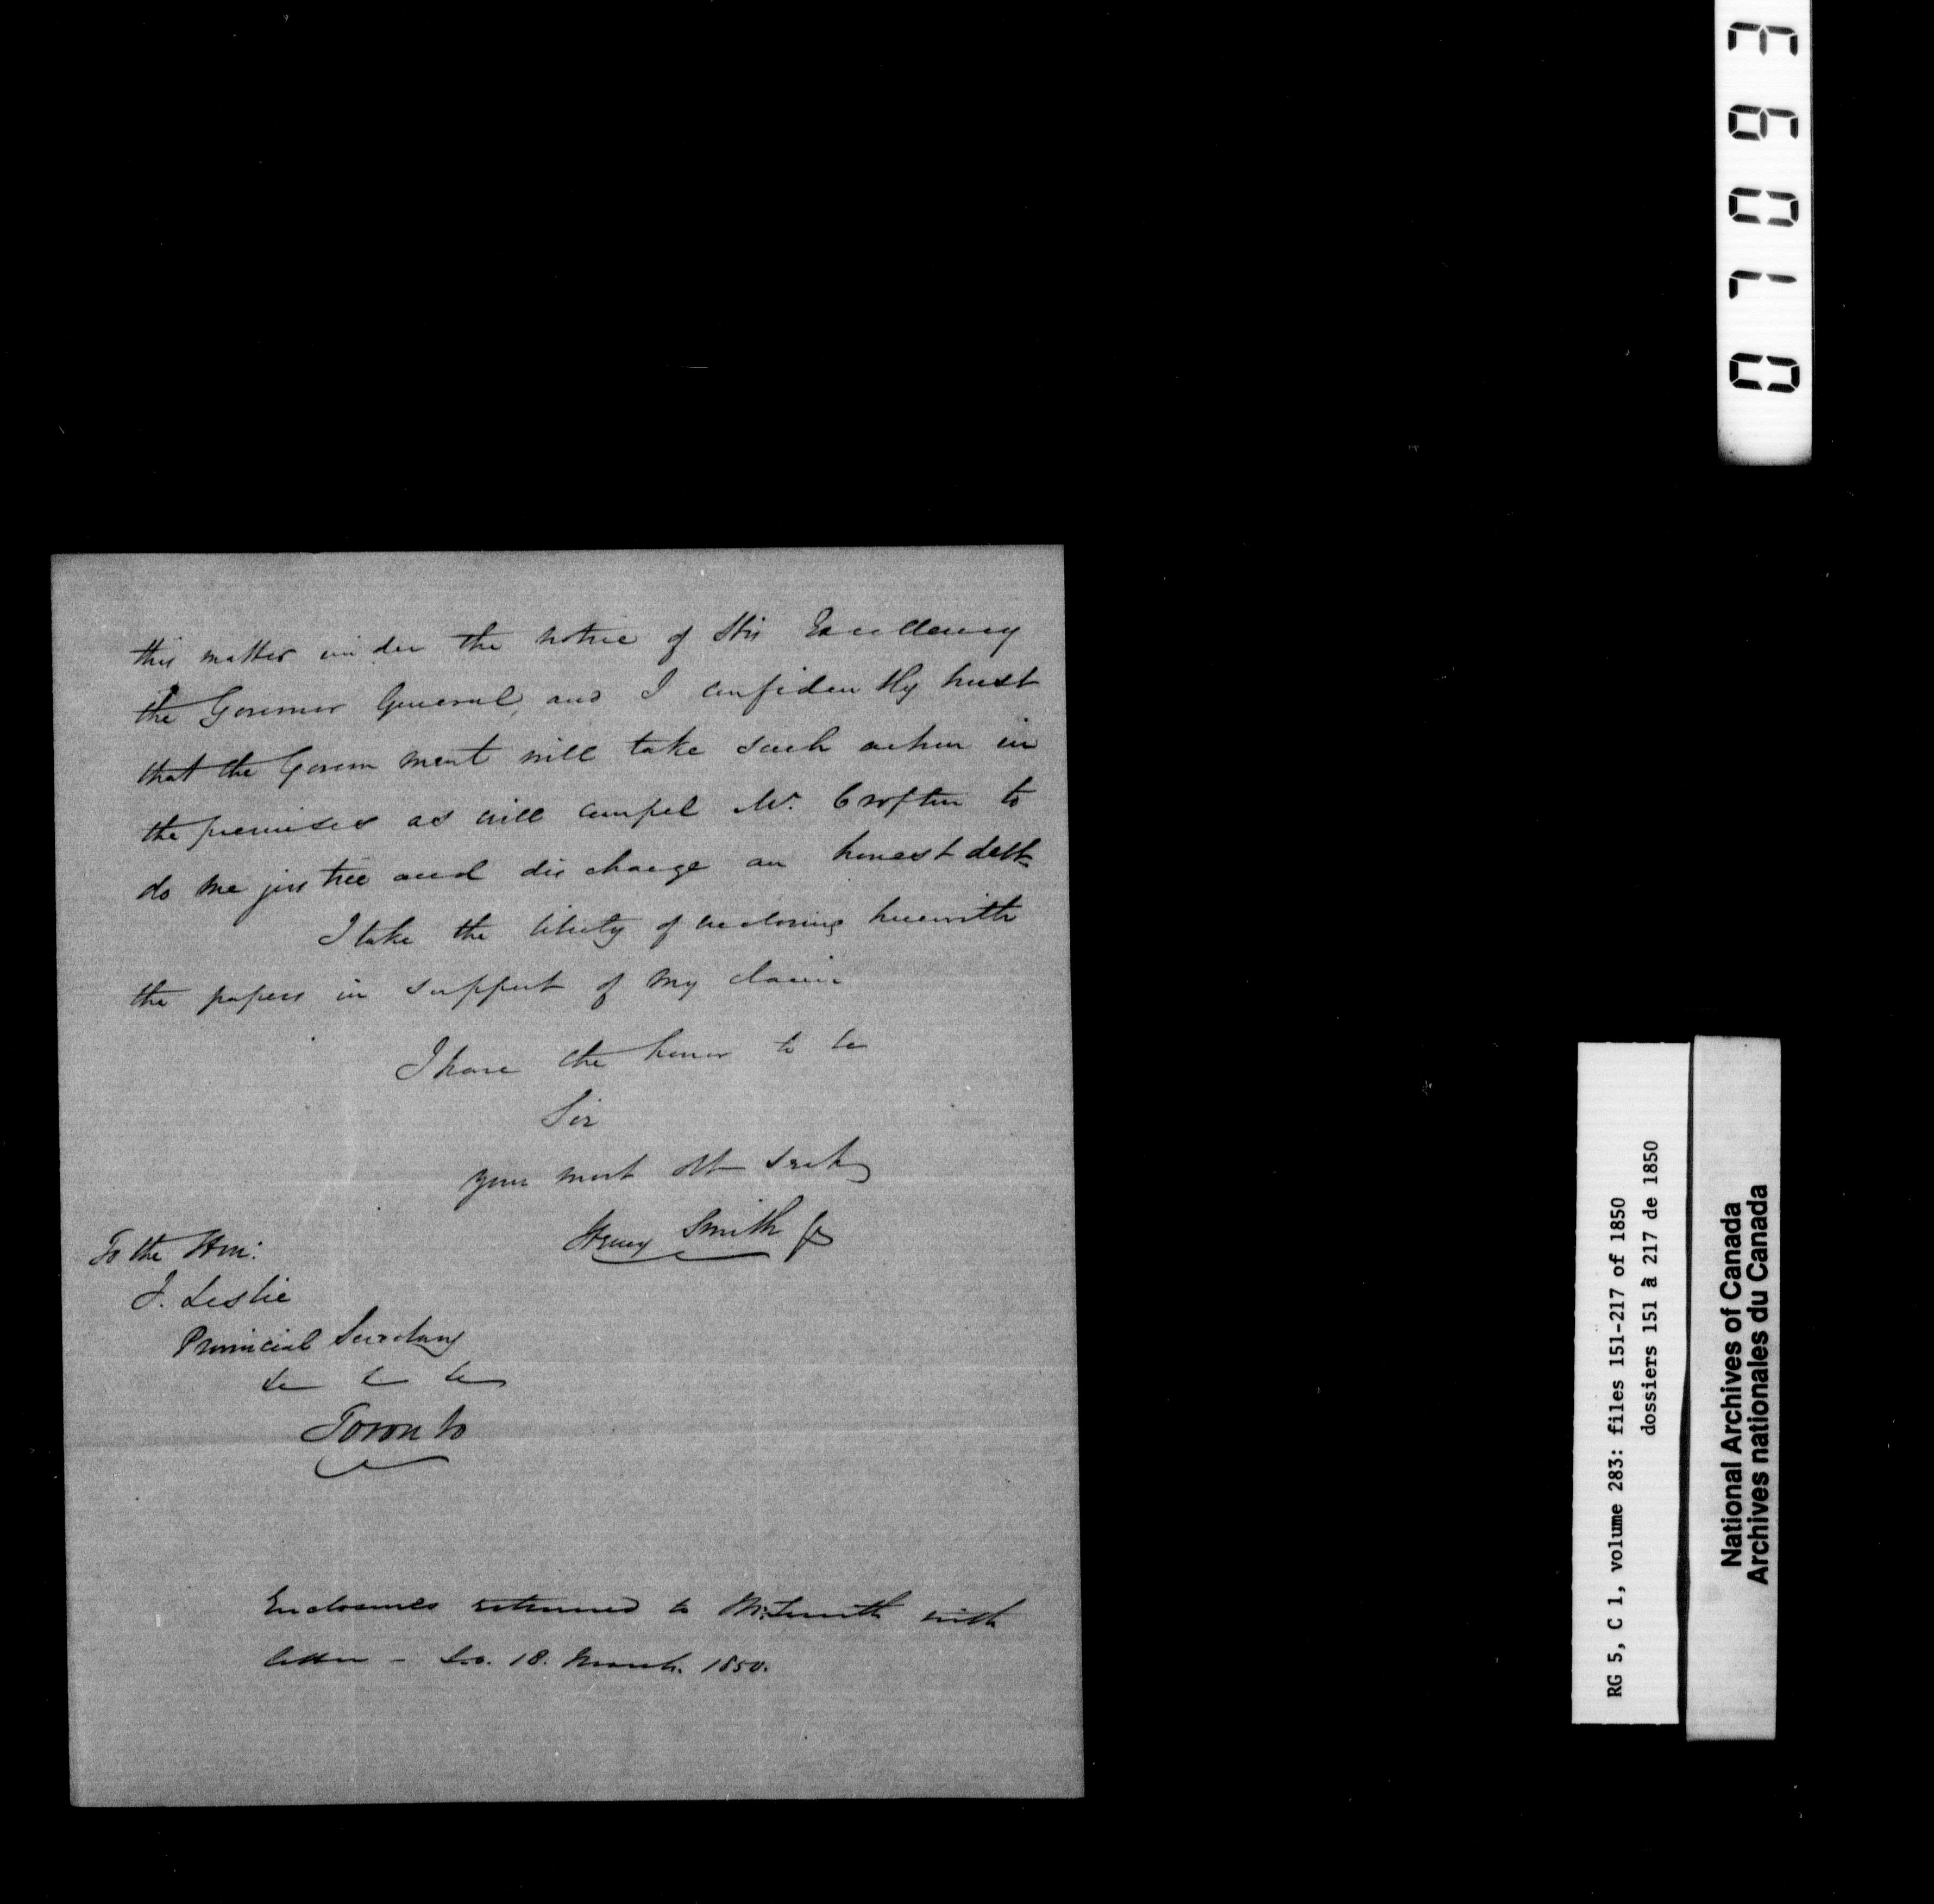 this matter under the notice of His Excellency
the Governor General, and I confidently trust
that the Government will take such action in
the premises as will compel Mr. Crofton to
do me justice and discharge an honest debt
I take the liberty of enclosing herewith
the papers in support of my claim
I have the honor to be
Sir
your most obt servt
Henry Smith Jr
To the Hon:
J. Leslie
Provincial Secretary
&c &c &c
Toronto
Enclosures returned to Mr. Smith with
letter - 18. March. 1850.
RG 5, C 1, volume 283: files 151-217 of 1850
dossiers 151 à 217 de 1850
National Archives of Canada
Archives nationales du Canada